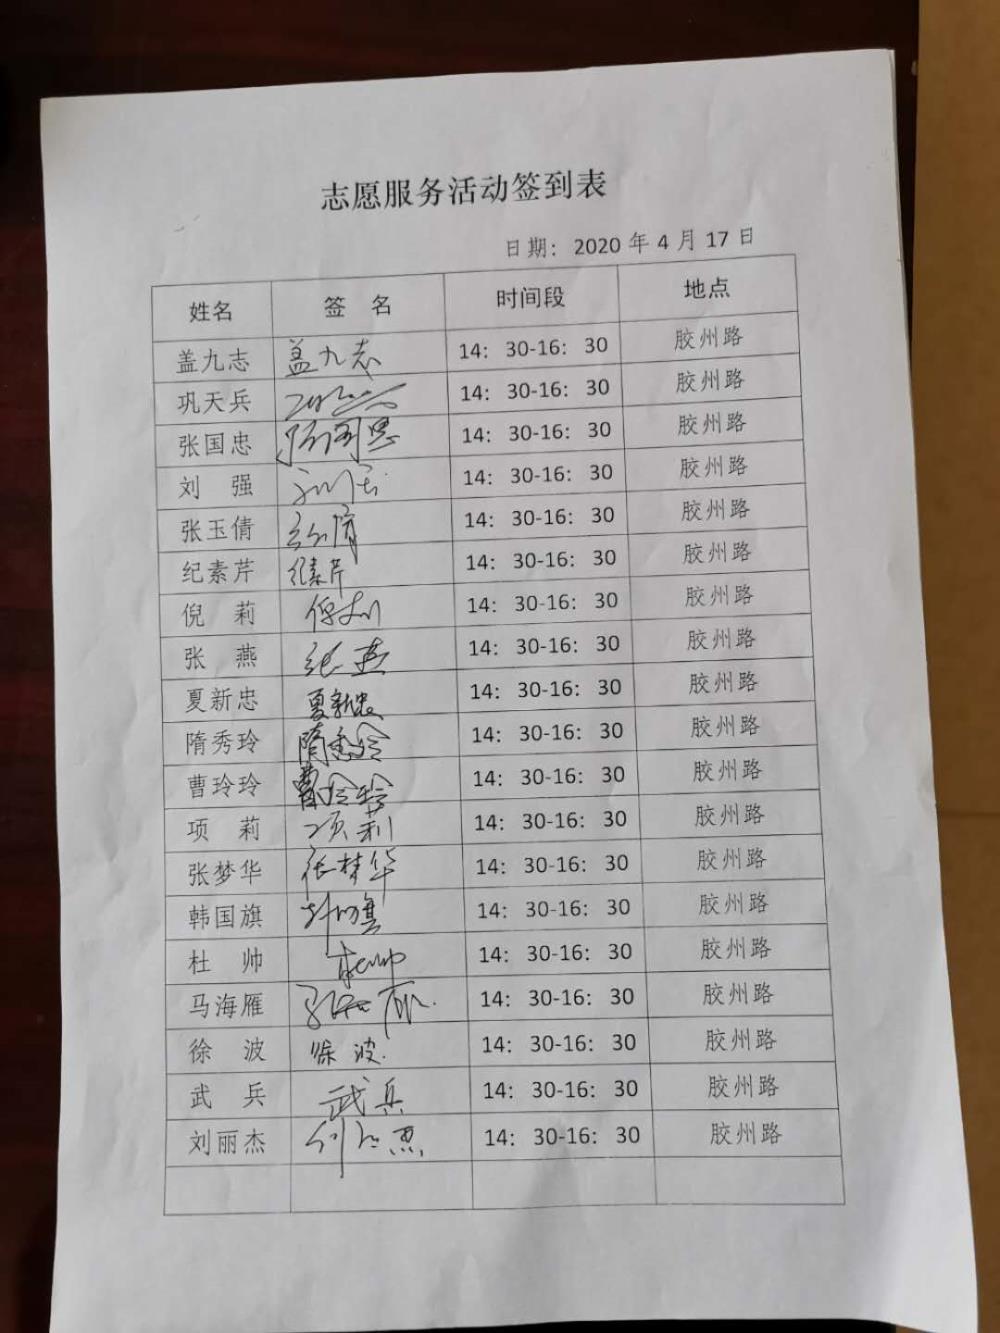 志愿服务活动签到表
日期：2020 年 4 月 17 日
姓名 签 名 时间段 地点
盖九志 盖九志 14：30-16：30 胶州路
巩天兵 14：30-16：30 胶州路
张国忠 张国忠 14：30-16：30 胶州路
刘 强 刘强 14：30-16：30 胶州路
张玉倩 14：30-16：30 胶州路
纪素芹 纪素芹 14：30-16：30 胶州路
倪 莉 倪莉 14：30-16：30 胶州路
张 燕 张燕 14：30-16：30 胶州路
夏新忠 夏新忠 14：30-16：30 胶州路
隋秀玲 隋秀玲 14：30-16：30 胶州路
曹玲玲 曹玲玲 14：30-16：30 胶州路
项 莉 项莉 14：30-16：30 胶州路
张梦华 张梦华 14：30-16：30 胶州路
韩国旗 韩国旗 14：30-16：30 胶州路
杜 帅 杜帅 14：30-16：30 胶州路
马海雁 马海雁 14：30-16：30 胶州路
徐 波 徐波 14：30-16：30 胶州路
武 兵 武兵 14：30-16：30 胶州路
刘丽杰 刘丽杰 14：30-16：30 胶州路